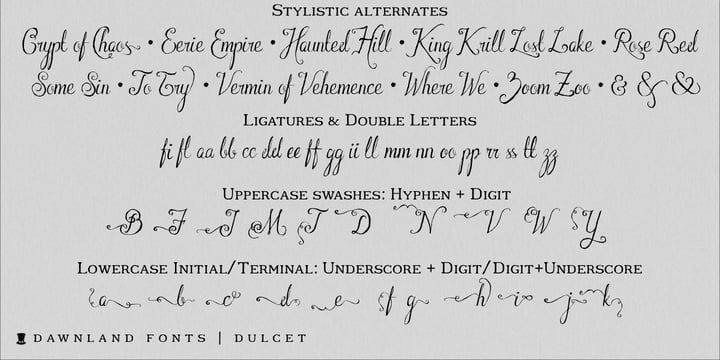 Stylistic alternates
Crypt of Chaos • Eerie Empire • Haunted Hill • King Krill Lost Lake • Rose Red
Some Sin • To Try • Vermin of Vehemence • Where We • Zoom Zoo • & & &
Ligatures & Double Letters
fi fl aa bb cc dd ee ff gg ii ll mm nn oo pp rr ss tt zz
Uppercase swashes: Hyphen + Digit
B F J M T D N V W Y
Lowercase Initial/Terminal: Underscore + Digit/Digit+Underscore
a b c d e f g h i j k
DAWNLAND FONTS | DULCET